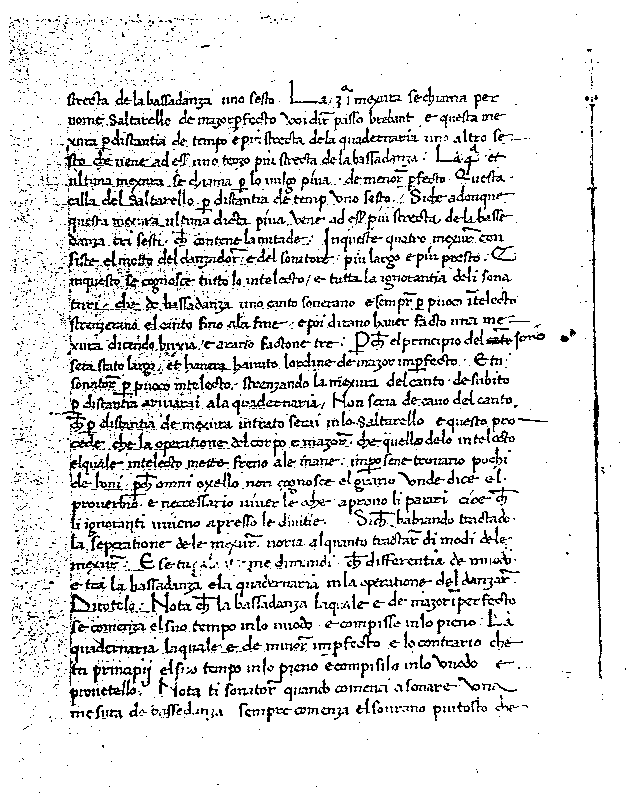 strecta de la bassadanza uno sesto. La 3ª mexura se chiama per
nome Saltarello de mazor perfecto voi dir passo brebant e questa me
xura p distantia de tempo e piu strecta de la quadernaria uno altro se
sto che vene ad ess uno terzo piu strecta de la bassadanza. La qª et
ultima mexura se chiama p lo vulgo piva. de menor pfecto. Questa
calla del Saltarello p distantia de temp uno sesto. Si che adonque
questa mexura ultima dicta piva vene ad ess piu strecta de la basse
danza tri sesti. ch contene la mitade. In queste quatro mexur con
siste el motto del danzador e del sonatore piu largo e piu presto. E
in questo se cognosce tutto lo intelecto e tutta la ignorantia deli sona
turi. che de bassadanza uno canto soverano e sempr p puoco itelecto
strenzerano el canto fino ala fine e poi dirano haver facto una me
xura dicendo buxia e arano factone tre. Pch el principio del sono
sera stato largo et havera havuto lordine de mazor imperfecto. E tu
sonator p puoco intelecto. strenzando la mexura del canto de subito
p distantia arivarai ala quadernaria. Non sera de cavo del canto
ch p distantia de mexura intrato serai in lo Saltarello e questo pro
cede che la operatione del corpo e mazor che quello delo intelecto
el quale intelecto mette freno ale mane. impo sene trovano puochi
de boni. pch omni oxello non cognosce el grano Unde dice el
proverbio e necessario viver le che aprano li parari cioe ch
li ignoranti vivieno apresso le divitie. Sich habiando tractado
la seperatione de le mexur voria alquanto tractar di modi dele
mexur. E se tu me dimandi ch differentia de muodo
e tra la bassadanza e la quadernaria in la operatione del danzar
Dirotelo. Nota ch la bassadanza la quale e de mazor imperfecto
se comenza el suo tempo in lo vuodo e compisse in lo pieno. La
quadernaria la quale e de minor impfecto e lo contrario che
tu principii el suo tempo in lo pieno e compisilo in lo vuodo e
provetello. Nota ti sonator quando comenci a sonare una
mesura de bassedanza sempre comenza el sovrano piutosto che